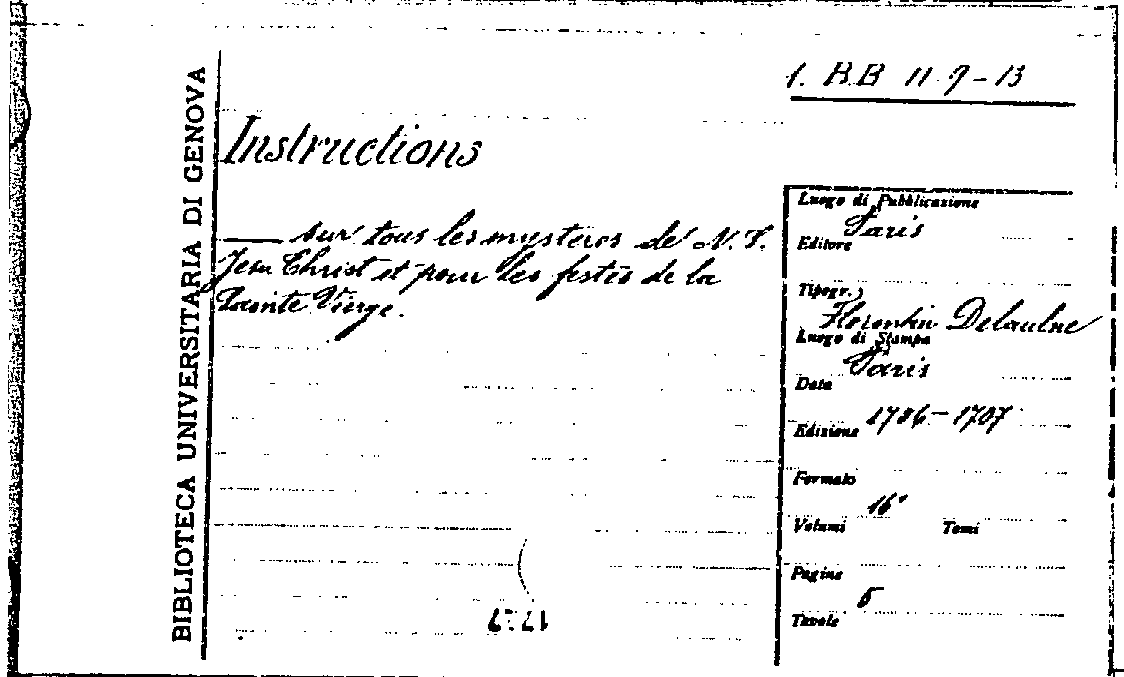 BIBLIOTECA UNIVERSITARIA DI GENOVA
1. BB 11 9-13
Instructions
sur tous les mysteres de N. S.
Jesu Christ et pour les festes de la
Sainte Vierge.
Luogo di Pubblicazione
Paris
Editore
Tipogr.
Florentin Delaulne
Luogo di Stampa
Paris
Data
1706-1707
Edizione
Formato
16°
Volumi Tomi
Pagine
5
Tavole